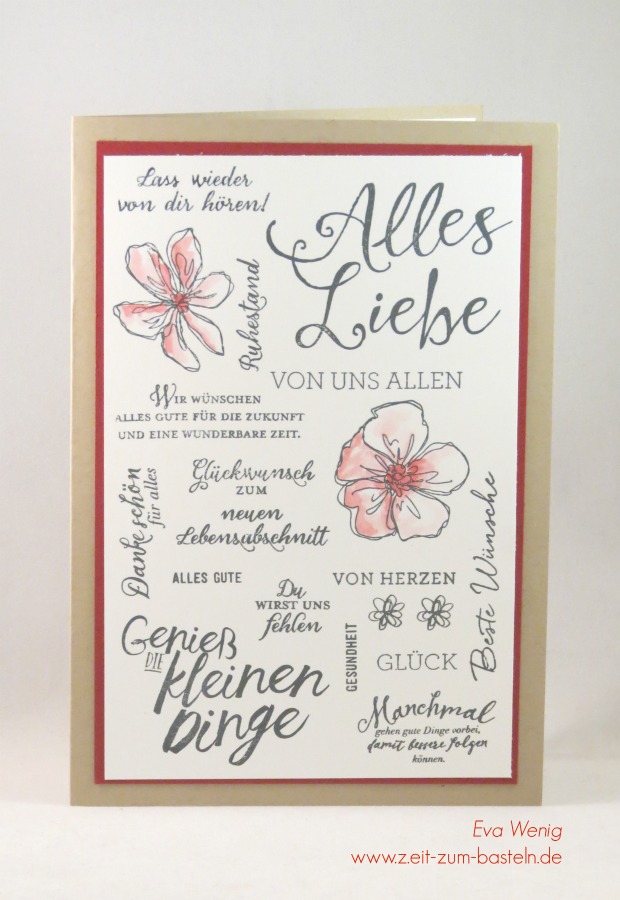 Lass wieder
von dir hören!
Alles
Liebe
Ruhestand
VON UNS ALLEN
WIR WÜNSCHEN
ALLES GUTE FÜR DIE ZUKUNFT
UND EINE WUNDERBARE ZEIT.
Danke schön
für alles
Glückwunsch
ZUM
neuen
Lebensabschnitt
Beste Wünsche
ALLES GUTE
Du
WIRST UNS
fehlen
VON HERZEN
GESUNDHEIT
GLÜCK
Genieß
DIE
kleinen
Dinge
Manchmal
gehen gute Dinge vorbei,
damit bessere folgen
können.
Eva Wenig
www.zeit-zum-basteln.de